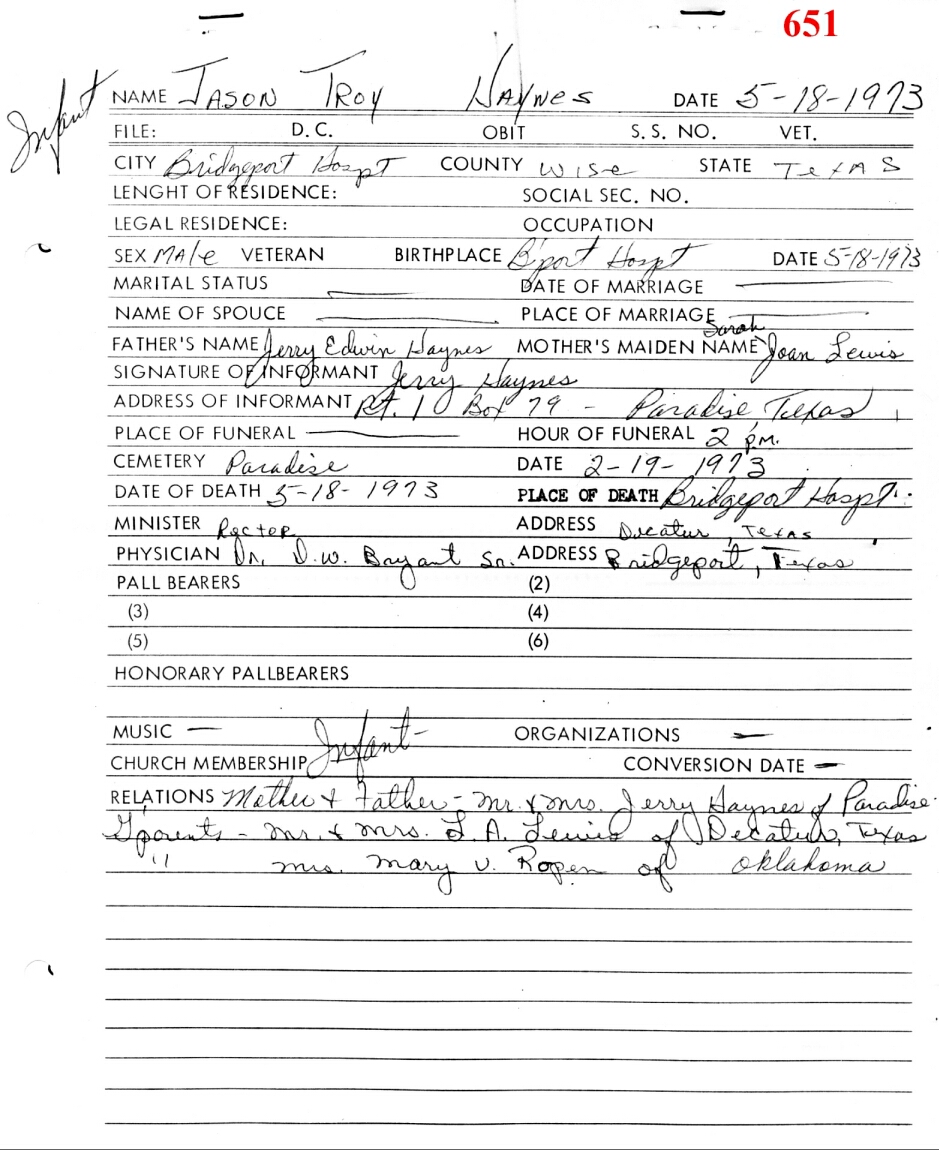 651
Infant
NAME Jason Troy Haynes DATE 5-18-1973
FILE: D.C. OBIT S.S. NO. VET.
CITY Bridgeport Hospt COUNTY Wise STATE Texas
LENGHT OF RESIDENCE: SOCIAL SEC. NO.
LEGAL RESIDENCE: OCCUPATION
SEX Male VETERAN BIRTHPLACE B'port Hospt DATE 5-18-1973
MARITAL STATUS — DATE OF MARRIAGE —
NAME OF SPOUCE — PLACE OF MARRIAGE —
FATHER'S NAME Jerry Edwin Haynes MOTHER'S MAIDEN NAME Sarah Joan Lewis
SIGNATURE OF INFORMANT Jerry Haynes
ADDRESS OF INFORMANT Rt. 1 Box 79 - Paradise, Texas
PLACE OF FUNERAL — HOUR OF FUNERAL 2 p.m.
CEMETERY Paradise DATE 2-19-1973
DATE OF DEATH 5-18-1973 PLACE OF DEATH Bridgeport Hospt.
MINISTER Rector ADDRESS Decatur, Texas
PHYSICIAN Dr. D.W. Bryant Sr. ADDRESS Bridgeport, Texas
PALL BEARERS (2)
(3) (4)
(5) (6)
HONORARY PALLBEARERS
MUSIC — ORGANIZATIONS —
CHURCH MEMBERSHIP Infant - CONVERSION DATE —
RELATIONS Mother & Father - Mr. & Mrs. Jerry Haynes of Paradise
G'parents - Mr. & Mrs. L. A. Lewis of Decatur, Texas
" Mrs. Mary V. Roper of Oklahoma